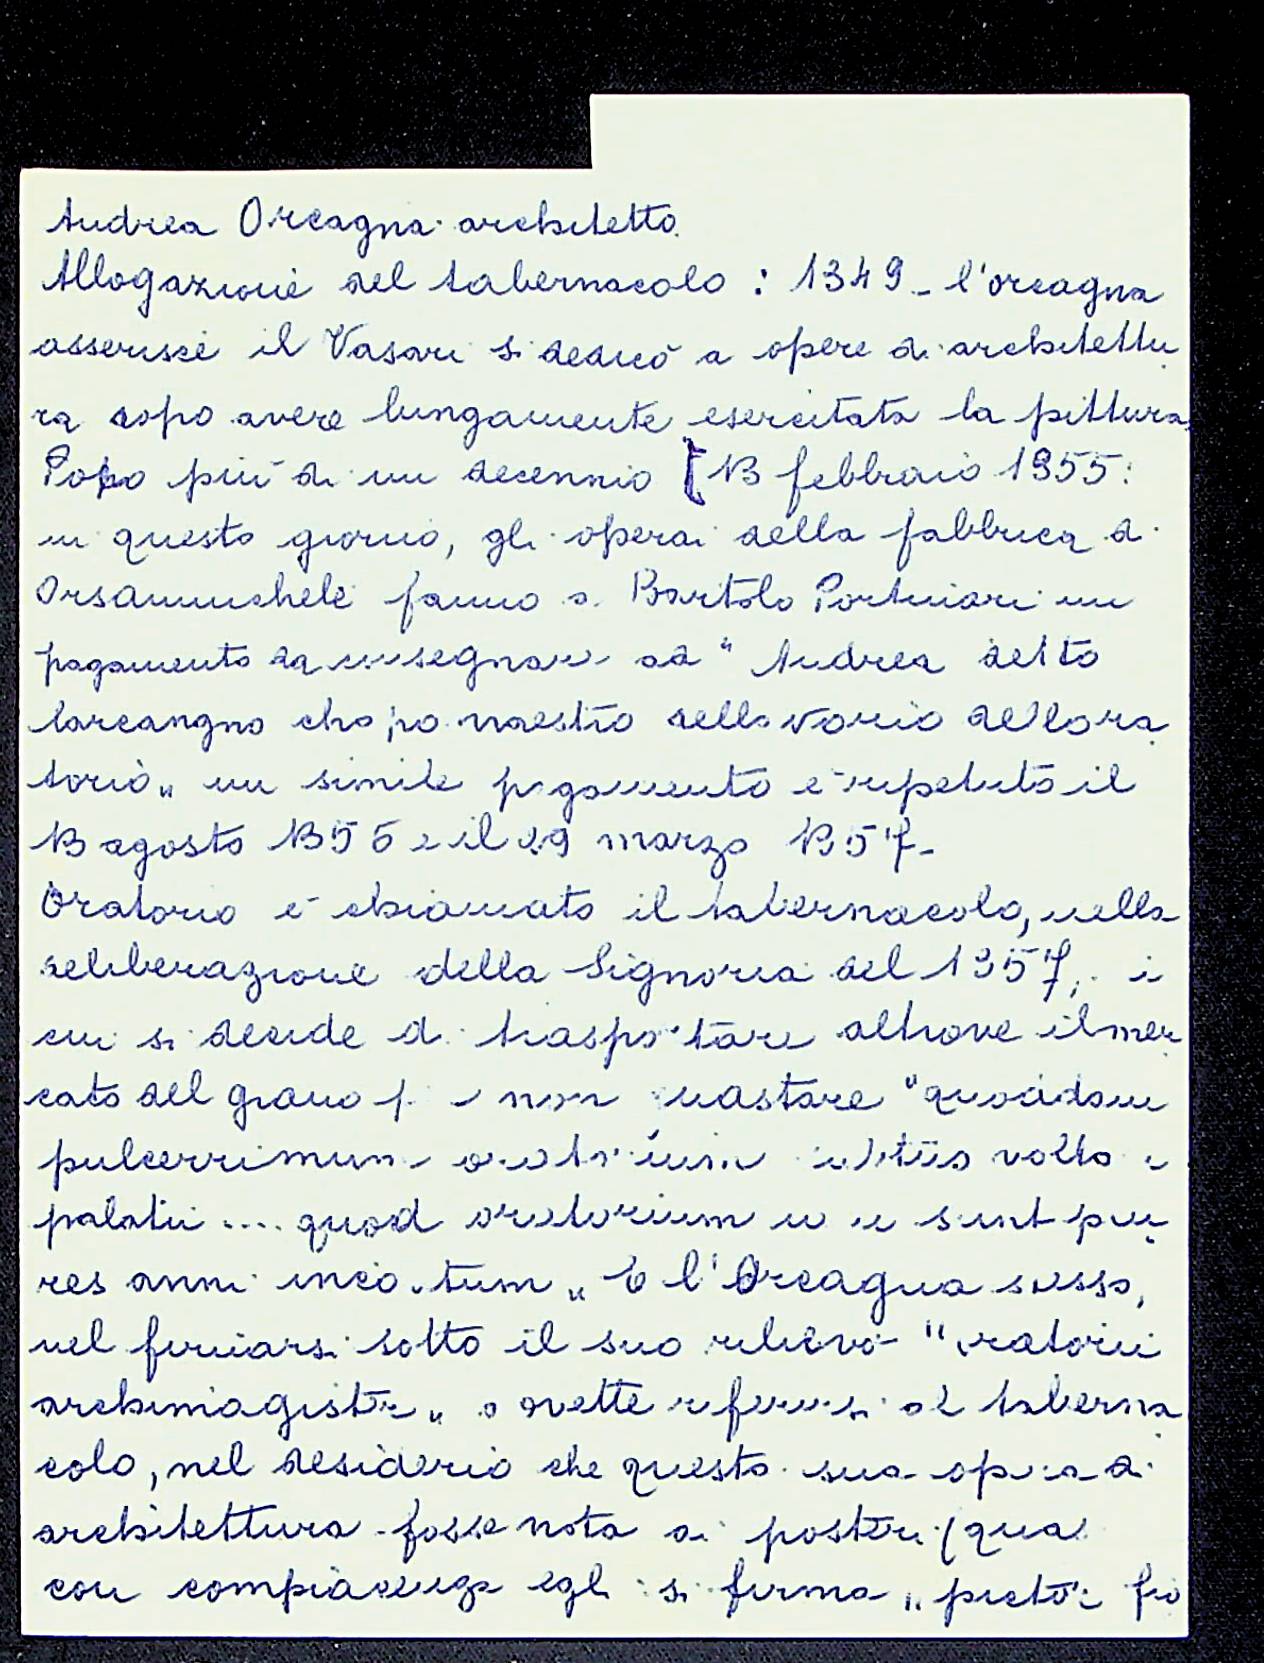 Andrea Orcagna architetto.
Allogazione del tabernacolo : 1349 - l'orcagna
asserisce il Vasari si dedicò a opere di architettu
ra dopo avere lungamente esercitata la pittura,
Dopo più di un decennio [13 febbraio 1355:
in questo giorno, gli operai della fabbrica di
Orsammichele fanno a Bartolo Portinari un
pagamento da insegnare ad "Andrea detto
larcangno chapo maestro dellavorio dellora
torio„ un simile pagamento è ripetuto il
13 agosto 1355 e il 29 marzo 1357-
Oratorio è chiamato il tabernacolo, nella
deliberazione della Signoria del 1357, i
cui si decide di trasportare altrove il mer
cato del grano non guastare "quoddam
pulcerrimum oratorium volta
palatii .... quod oratorium sunt plu
res anni incotum„ E l'Orcagna stesso,
nel firmarsi sotto il suo rilievo "oratorii
archimagister„ dovette riferirsi al taberna
colo, nel desiderio che questa sua opera di
architettura fosse nota ai posteri (qua
con compiacenza egli si firma „pictor fio